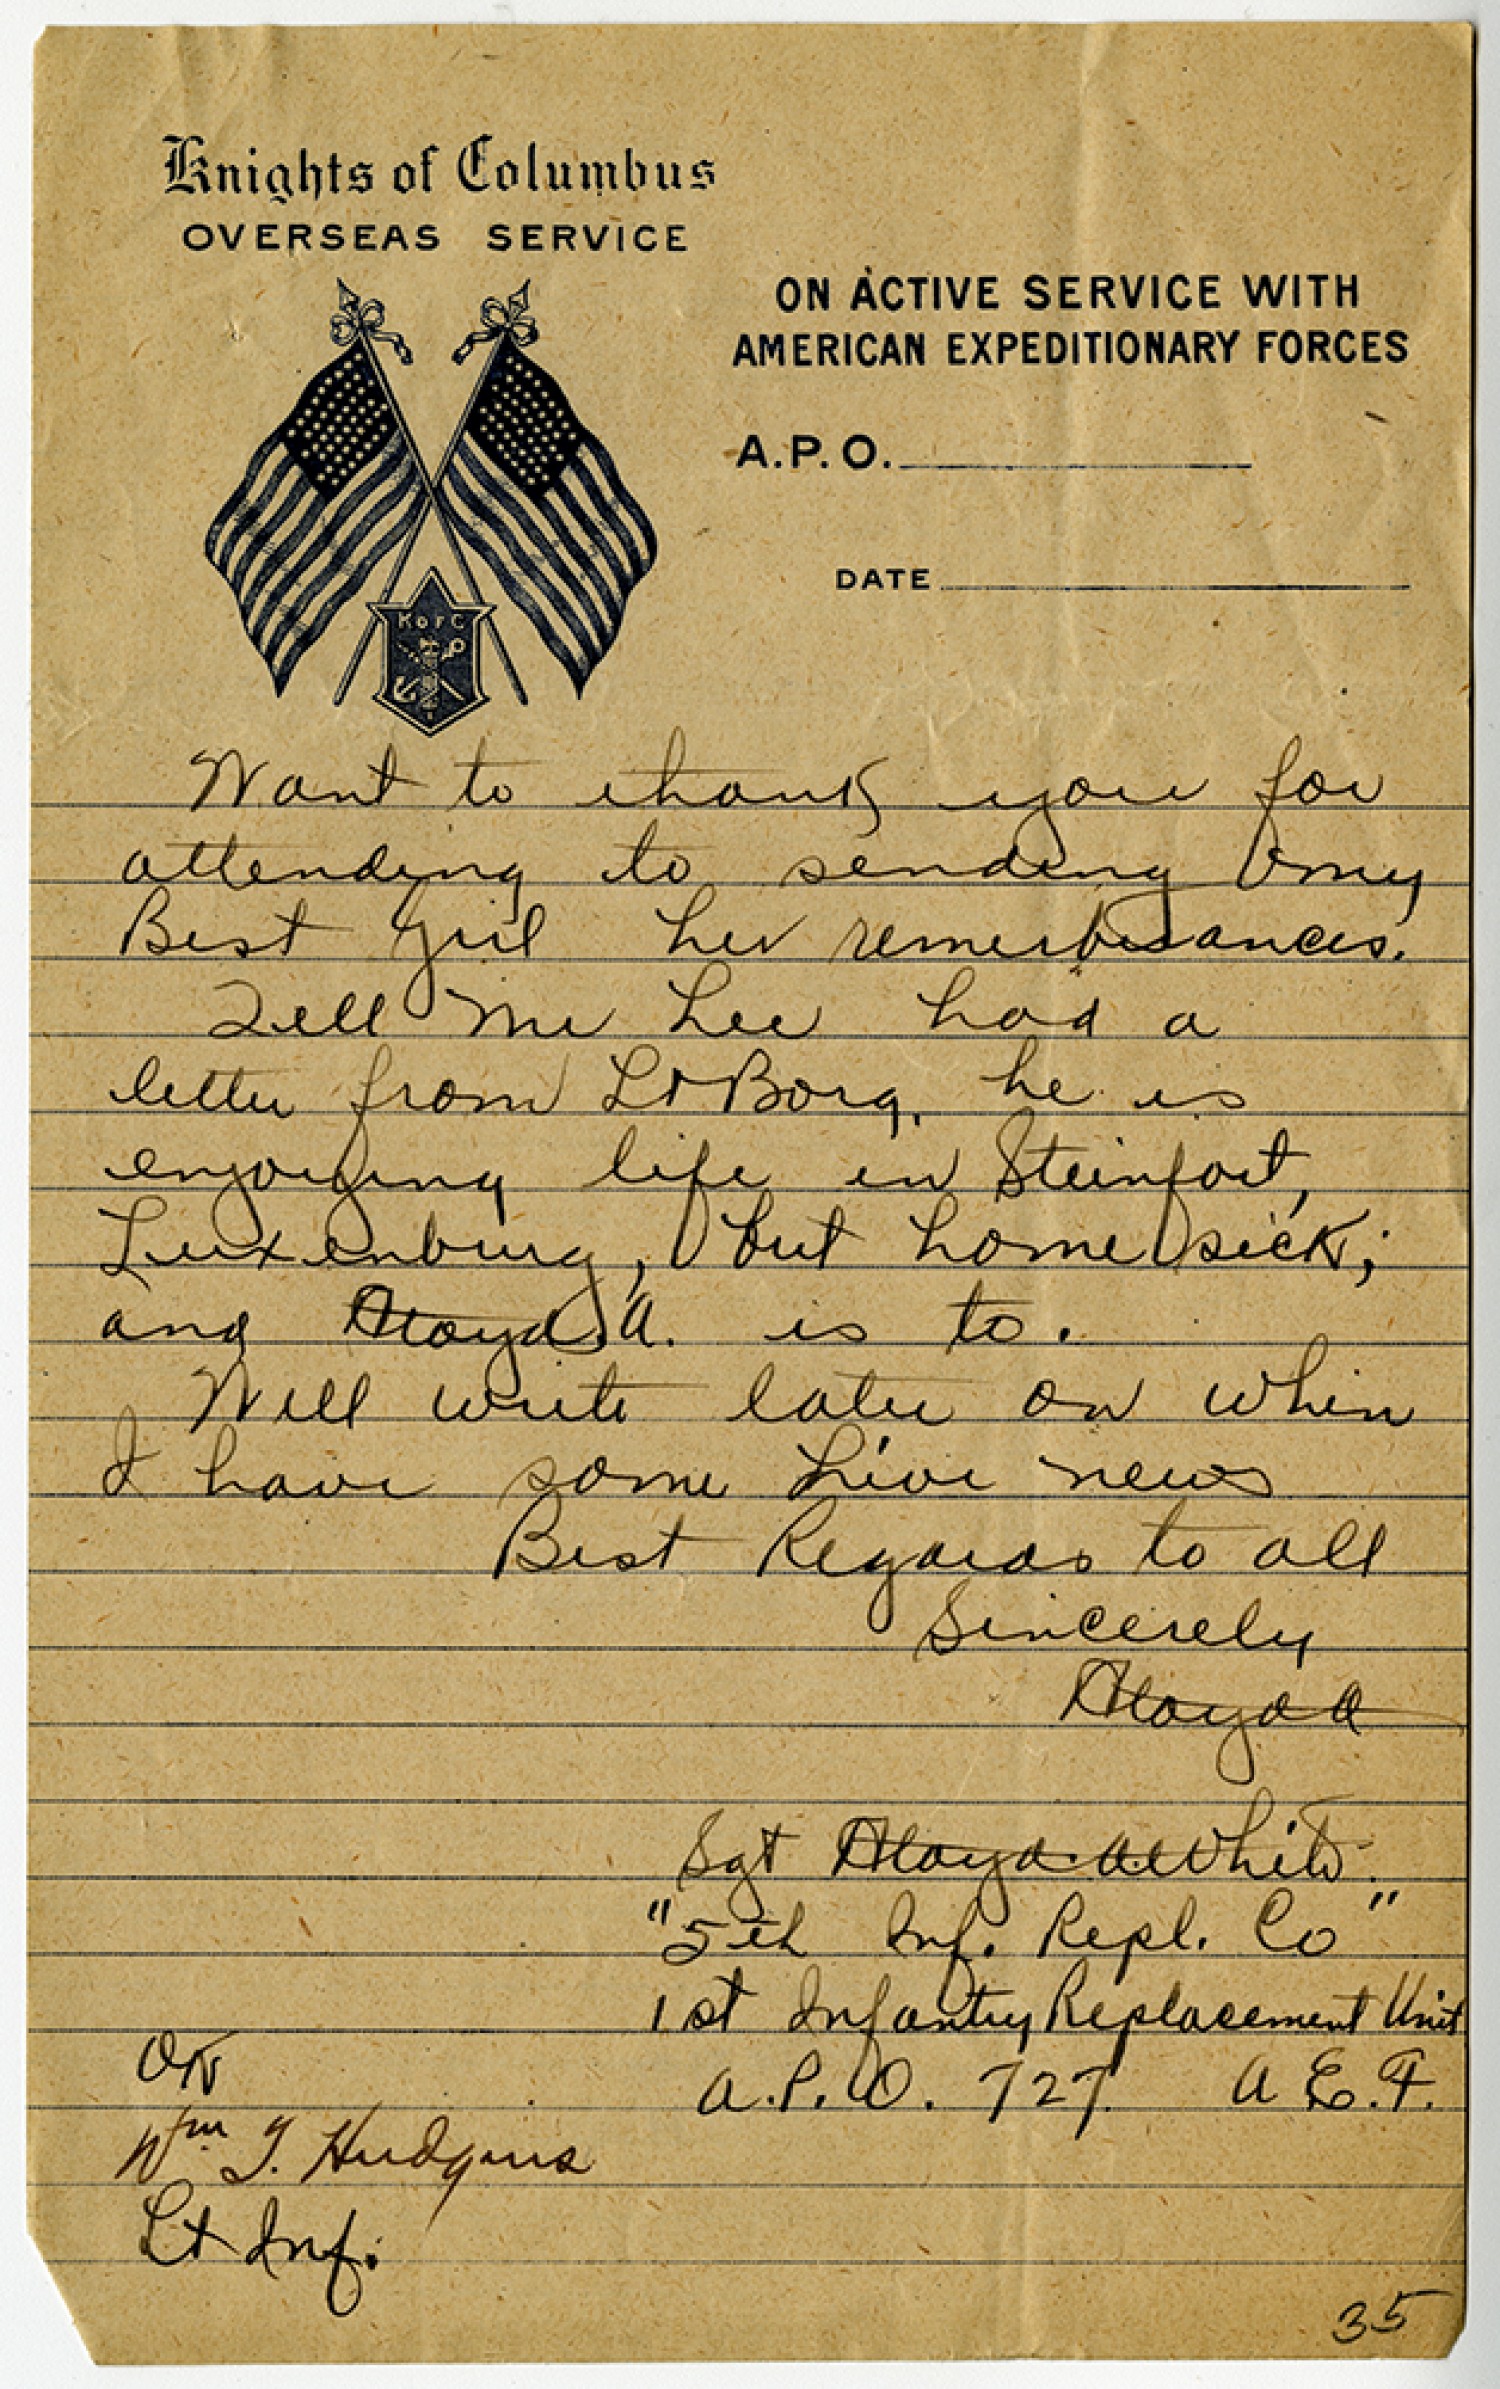 Knights of Columbus
OVERSEAS SERVICE
ON ACTIVE SERVICE WITH
AMERICAN EXPEDITIONARY FORCES
A.P.O.
DATE
K of C
Want to thank you for
attending to sending my
Best Girl her remembrances.
Tell Mr Lee had a
letter from Lt Borg, he is
enjoying life in Steinfort,
Luxenburg, but home sick;
and Floyd A. is to.
Will write later on when
I have some Live news
Best Regards to all
Sincerely
Floyd A
Sgt Floyd. A. White.
"5th Inf. Repl. Co"
1st Infantry Replacement Unit
A.P.O. 727. A E.F.
OK
Wm T. Hudgins
Lt Inf.
35